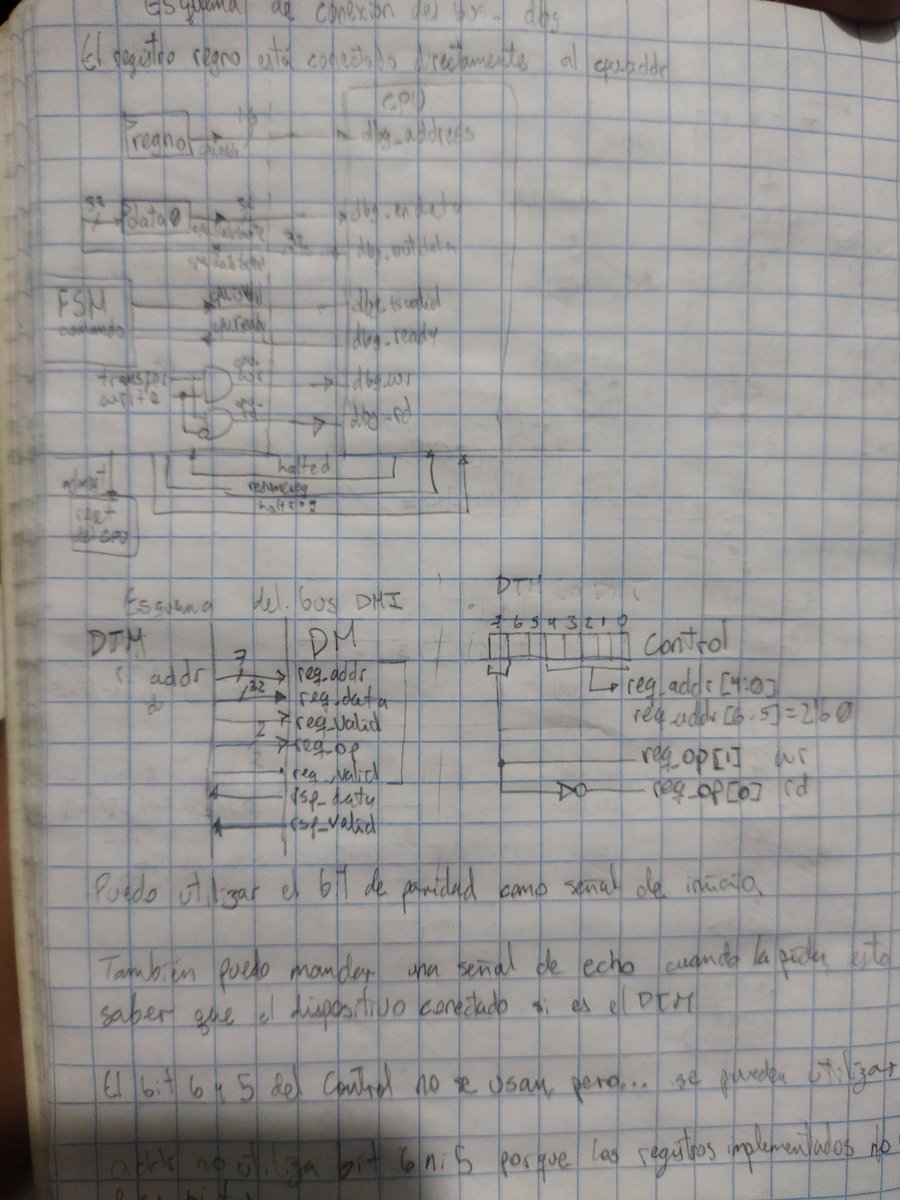 Esquema de conexión del bus dbg
El registro regno está conectado directamente al cpuaddr
CPU
regno 16 dbg_address
32 data0 32 dbg_endata
32 dbg_outdata
FSM dbg_isvalid
comando dbg_ready
transfer dbg_wr
write dbg_rd
halted
resumereq
haltreq
Esquema del bus DMI
DTM DM
addr 7 req_addr
32 req_data
req_valid
2 req_op
req_valid
rsp_data
rsp_valid
7 6 5 4 3 2 1 0 Control
req_addr[4:0]
req_addr[6:5]=2'b0
req_op[1] wr
req_op[0] rd
Puedo utilizar el bit de paridad como señal de inicio
También puedo mandar una señal de echo cuando la pida, esto
saber que el dispositivo conectado si es el DTM
El bit 6 y 5 del Control no se usan, pero... se pueden utilizar
addr no utiliza bit 6 ni 5 porque los registros implementados no